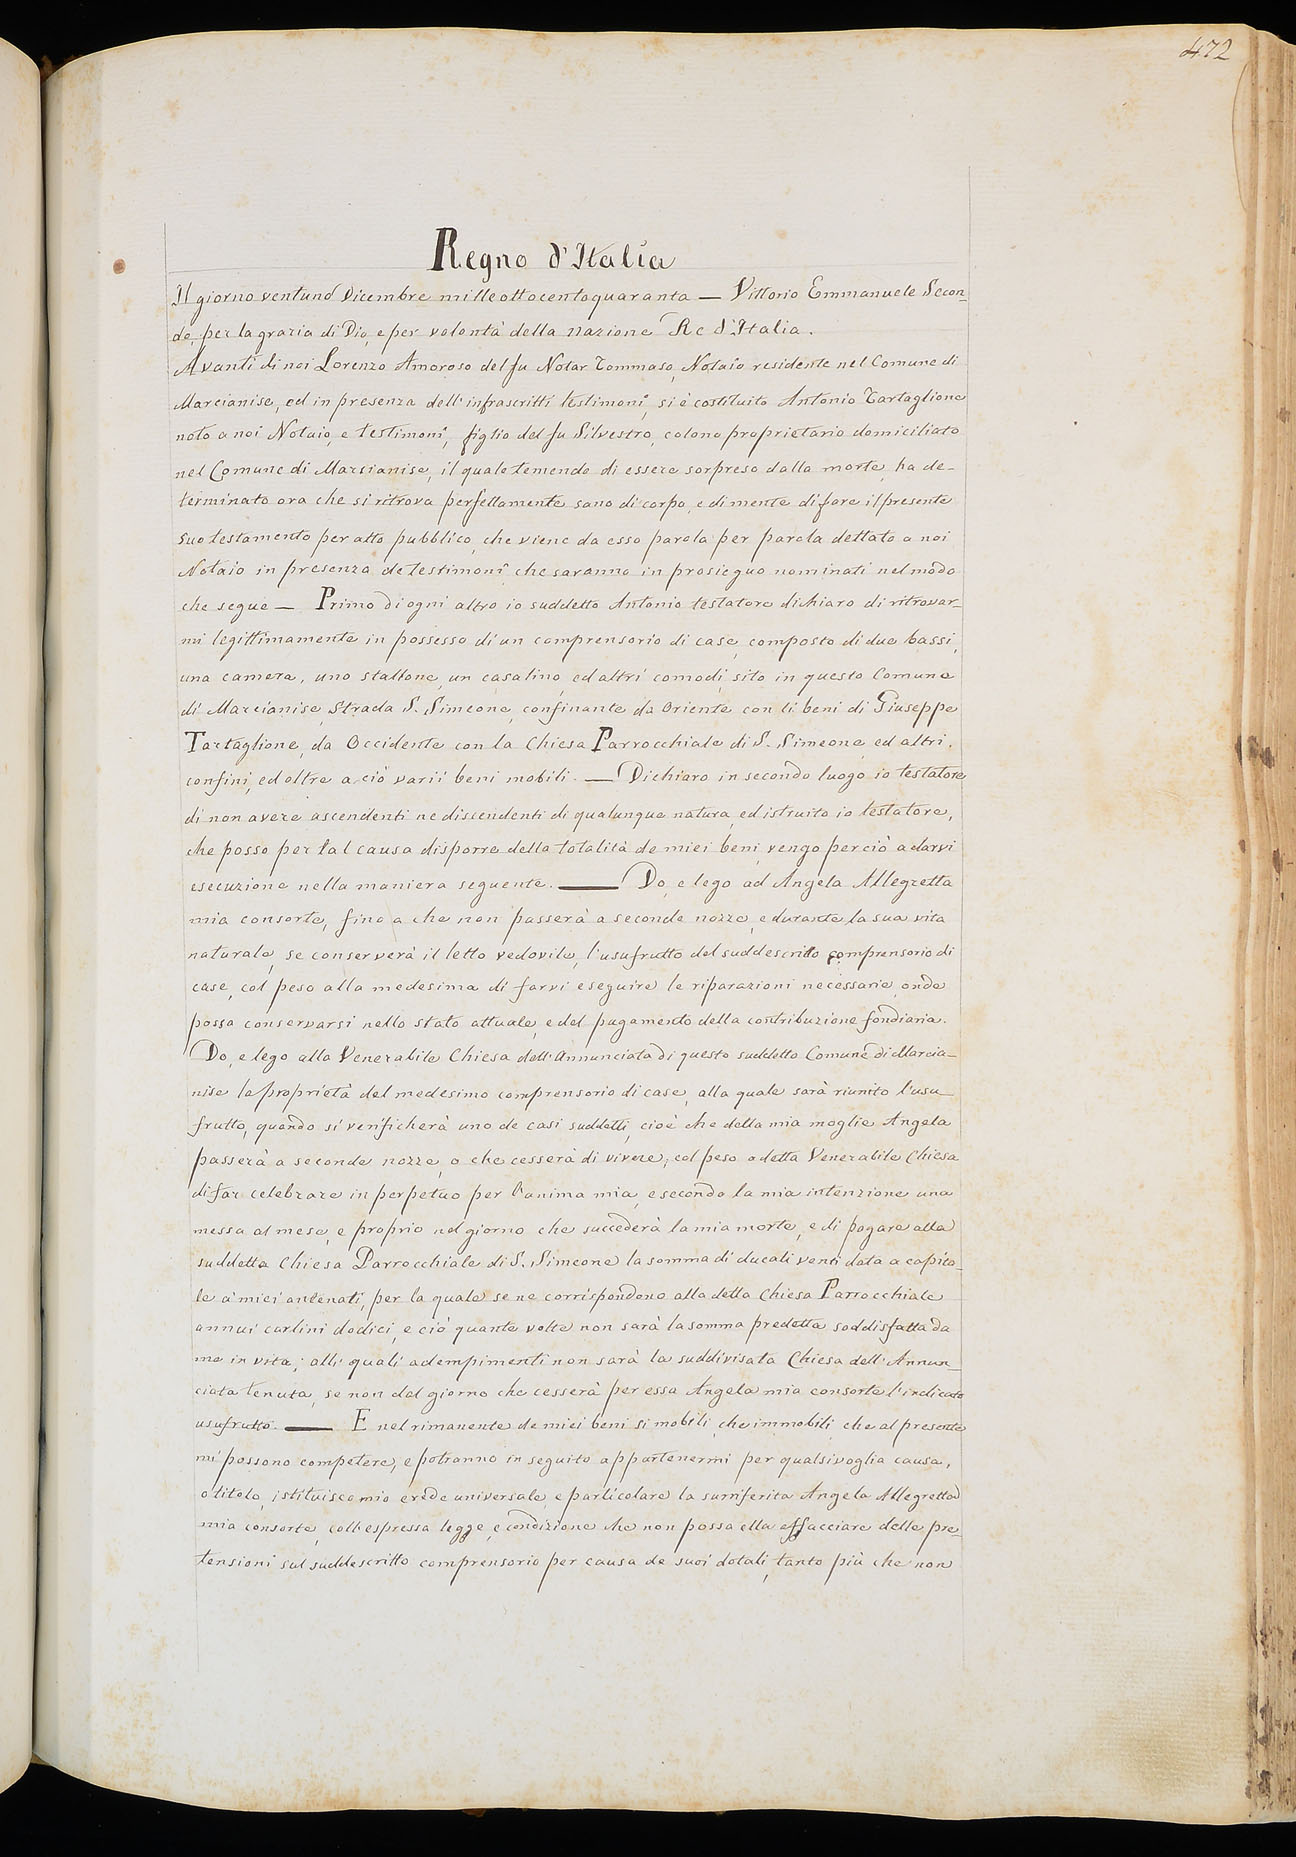 472
Regno d'Italia
Il giorno ventuno Dicembre milleottocentoquaranta — Vittorio Emmanuele Secon-
do, per la grazia di Dio, e per volontà della nazione Re d'Italia.
Avanti di noi Lorenzo Amoroso del fu Notar Tommaso, Notaio residente nel Comune di
Marcianise, ed in presenza dell'infrascritti testimoni, si è costituito Antonio Tartaglione
noto a noi Notaio, e testimoni, figlio del fu Silvestro, colono proprietario domiciliato
nel Comune di Marcianise, il quale temendo di essere sorpreso dalla morte, ha de-
terminato ora che si ritrova perfettamente sano di corpo, e di mente di fare il presente
suo testamento per atto pubblico, che viene da esso parola per parola dettato a noi
Notaio in presenza de testimoni che saranno in prosieguo nominati nel modo
che segue — Primo di ogni altro io suddetto Antonio testatore dichiaro di ritrovar-
mi legittimamente in possesso di un comprensorio di case, composto di due bassi,
una camera, uno stallone, un casalino, ed altri comodi, sito in questo Comune
di Marcianise, Strada S. Simeone, confinante da Oriente con li beni di Giuseppe
Tartaglione, da Occidente con la Chiesa Parrocchiale di S. Simeone, ed altri
confini, ed oltre a ciò varii beni mobili. — Dichiaro in secondo luogo io testatore
di non avere ascendenti ne discendenti di qualunque natura, ed istruito io testatore,
che posso per tal causa disporre della totalità de miei beni, vengo perciò a darvi
esecuzione nella maniera seguente. — Do, e lego ad Angela Allegretta
mia consorte, fino a che non passerà a seconde nozze, e durante la sua vita
naturale, se conserverà il letto vedovile, l'usufrutto del suddescritto comprensorio di
case, col peso alla medesima di farvi eseguire le riparazioni necessarie, onde
possa conservarsi nello stato attuale, e del pagamento della contribuzione fondiaria.
Do, e lego alla Venerabile Chiesa dell'Annunciata di questo suddetto Comune di Marcia-
nise la proprietà del medesimo comprensorio di case, alla quale sarà riunito l'usu-
frutto, quando si verificherà uno de casi suddetti, cioè che della mia moglie Angela
passerà a seconde nozze, o che cesserà di vivere; col peso a detta Venerabile Chiesa
di far celebrare in perpetuo per l'anima mia, e secondo la mia intenzione una
messa al mese, e proprio nel giorno che succederà la mia morte, e di pagare alla
suddetta Chiesa Parrocchiale di S. Simeone la somma di ducati venti data a capita-
le a' miei antenati, per la quale se ne corrispondono alla detta Chiesa Parrocchiale
annui carlini dodici, e ciò quante volte non sarà la somma predetta soddisfatta da
me in vita; alli quali adempimenti non sarà la suddivisata Chiesa dell'Annun-
ciata tenuta, se non dal giorno che cesserà per essa Angela mia consorte l'indicato
usufrutto. — E nel rimanente de miei beni si mobili, che immobili, che al presente
mi possono competere, e potranno in seguito appartenermi per qualsivoglia causa,
o titolo, istituisco mio erede universale, e particolare la surriferita Angela Allegretta
mia consorte, coll'espressa legge, e condizione che non possa ella affacciare delle pre-
tensioni sul suddescritto comprensorio per causa de suoi dotali, tanto più che non